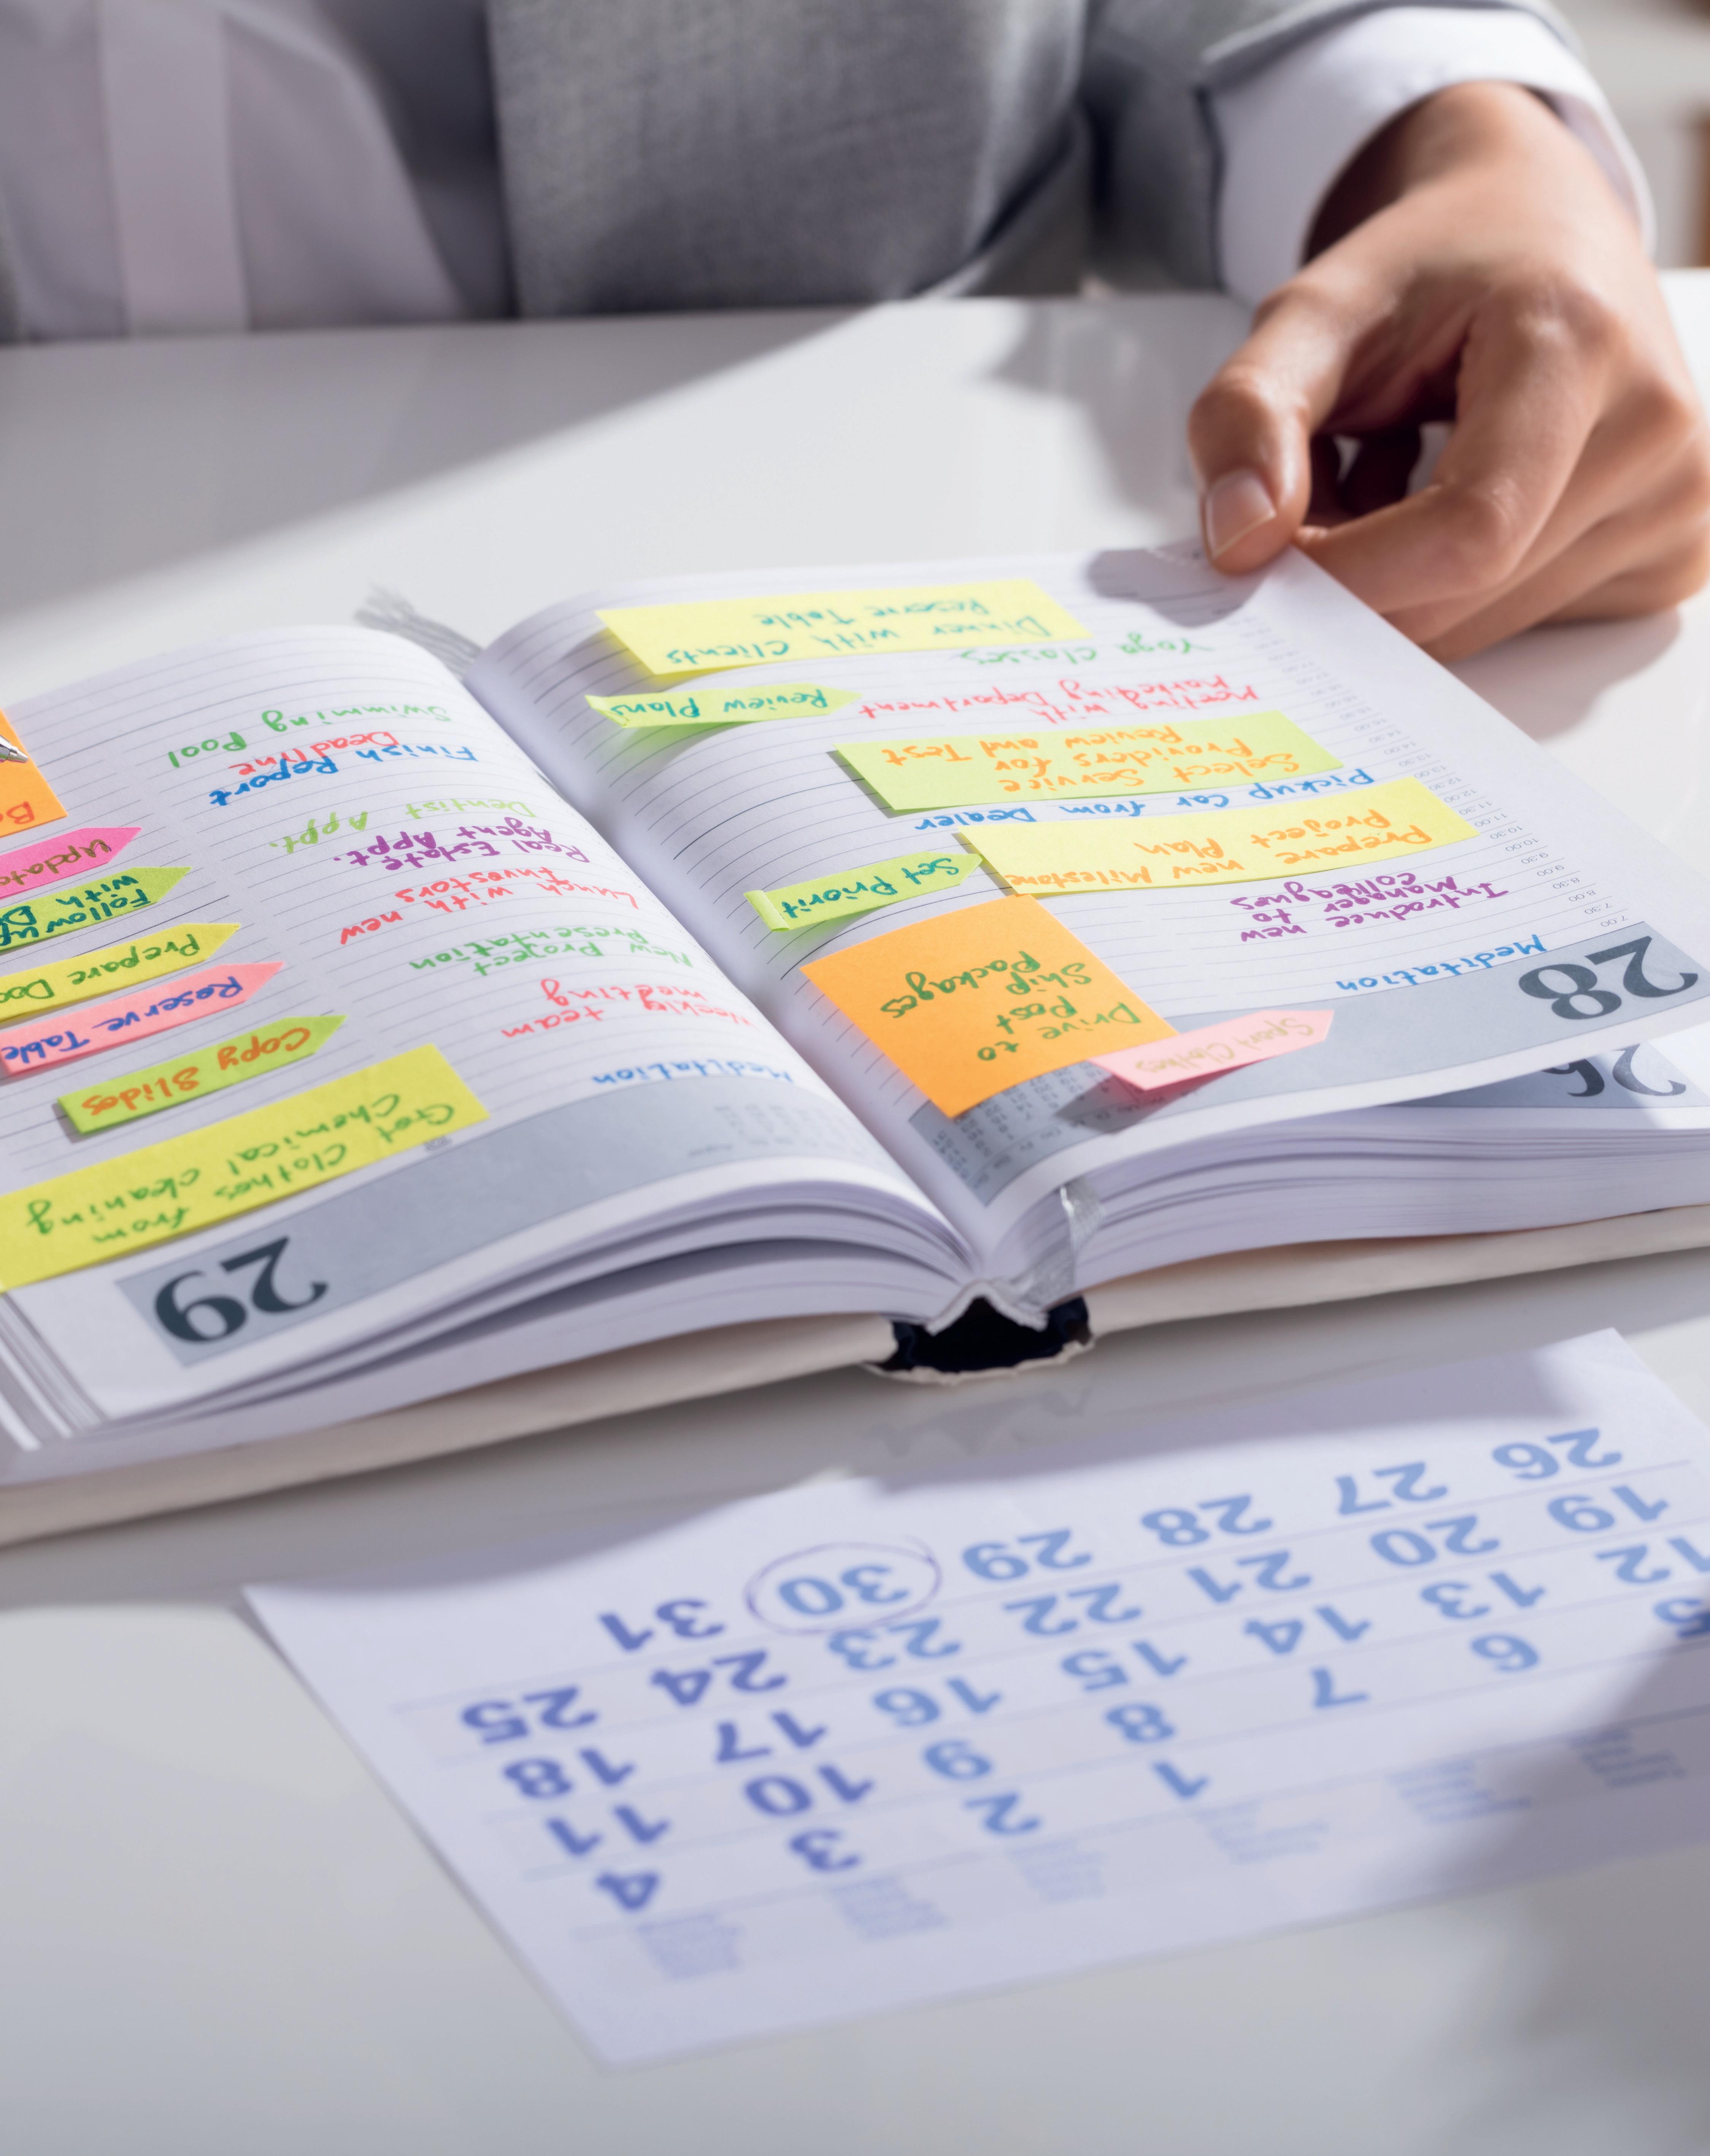 28
Meditation
Introduce new
Manager to
Colleagues
Prepare new Milestone
Project Plan
Pickup Car from Dealer
Select Service
Providers for
Review and Test
Meeting with
Marketing Department
Yoga Classes
Dinner with Clients
Reserve Table
Sport Clothes
Drive to
Post
Ship
Packages
Set Priorit
Review Plans
7.00
7.30
8.00
8.30
9.00
9.30
10.30
11.00
11.30
12.00
12.30
13.00
26
29
Meditation
Weekly team
meeting
New Project
Presentation
Lunch with new
Investors
Real Estate
Agent Appt.
Dentist Appt.
Finish Report
Deadline
Swimming Pool
Get Clothes from
Chemical cleaning
Copy Slides
Reserve Table
Prepare Doc
Follow up
with D
Updat
1 2 3 4
5 6 7 8 9 10 11
12 13 14 15 16 17 18
19 20 21 22 23 24 25
26 27 28 29 30 31